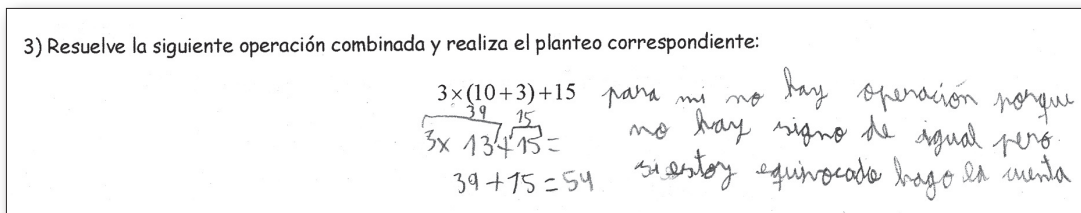 3) Resuelve la siguiente operación combinada y realiza el planteo correspondiente:
3×(10+3)+15 para mi no hay operación porque
39 15
3x 13+15= no hay signo de igual pero
39+15=54 si estoy equivocado hago la cuenta